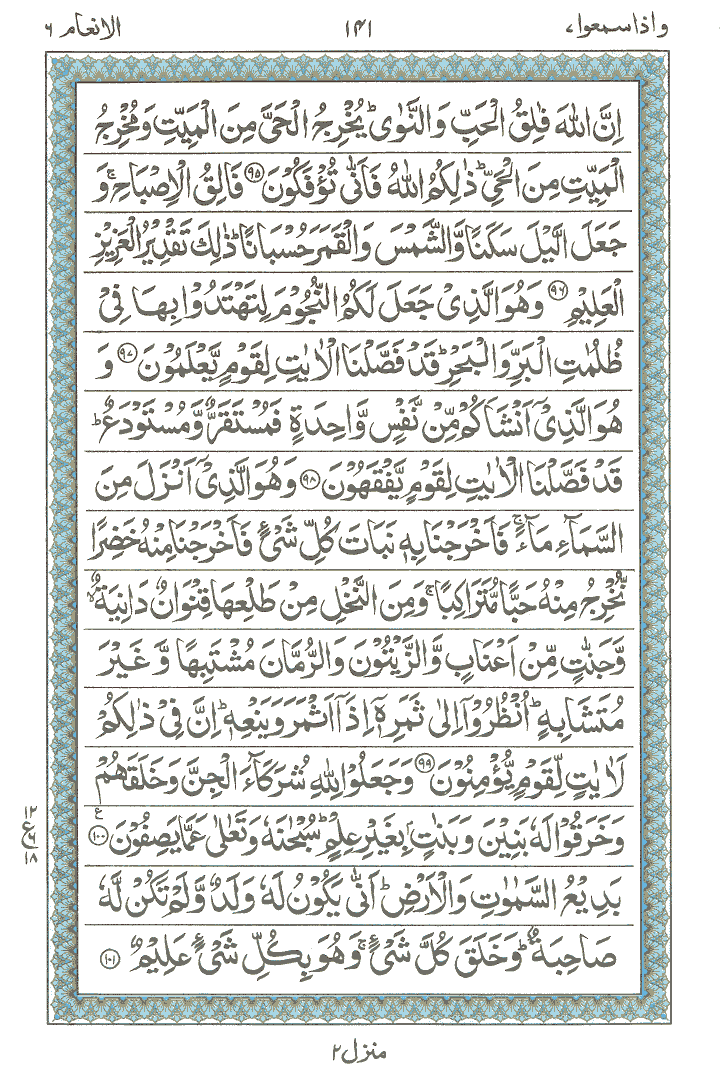 واذا سمعوا ٧
١٤١
الانعام ٦
اِنَّ اللّٰهَ فٰلِقُ الْحَبِّ وَالنَّوٰىؕ يُخْرِجُ الْحَىَّ مِنَ الْمَيِّتِ وَمُخْرِجُ
الْمَيِّتِ مِنَ الْحَىِّؕ ذٰلِكُمُ اللّٰهُ فَاَنّٰى تُؤْفَكُوْنَ ۝٩٥ فَالِقُ الْاِصْبَاحِۚ وَ
جَعَلَ الَّيْلَ سَكَنًا وَّالشَّمْسَ وَالْقَمَرَ حُسْبَانًاؕ ذٰلِكَ تَقْدِيْرُ الْعَزِيْزِ
الْعَلِيْمِ ۝٩٦ وَهُوَ الَّذِىْ جَعَلَ لَكُمُ النُّجُوْمَ لِتَهْتَدُوْا بِهَا فِىْ
ظُلُمٰتِ الْبَرِّ وَالْبَحْرِؕ قَدْ فَصَّلْنَا الْاٰيٰتِ لِقَوْمٍ يَّعْلَمُوْنَ ۝٩٧ وَ
هُوَ الَّذِىْۤ اَنْشَاَكُمْ مِّنْ نَّفْسٍ وَّاحِدَةٍ فَمُسْتَقَرٌّ وَّمُسْتَوْدَعٌؕ
قَدْ فَصَّلْنَا الْاٰيٰتِ لِقَوْمٍ يَّفْقَهُوْنَ ۝٩٨ وَهُوَ الَّذِىْۤ اَنْزَلَ مِنَ
السَّمَآءِ مَآءًۚ فَاَخْرَجْنَا بِهٖ نَبَاتَ كُلِّ شَىْءٍ فَاَخْرَجْنَا مِنْهُ خَضِرًا
نُّخْرِجُ مِنْهُ حَبًّا مُّتَرَاكِبًاۚ وَمِنَ النَّخْلِ مِنْ طَلْعِهَا قِنْوَانٌ دَانِيَةٌۙ
وَّجَنّٰتٍ مِّنْ اَعْنَابٍ وَّالزَّيْتُوْنَ وَالرُّمَّانَ مُشْتَبِهًا وَّ غَيْرَ
مُتَشَابِهٍؕ اُنْظُرُوْۤا اِلٰى ثَمَرِهٖۤ اِذَاۤ اَثْمَرَ وَيَنْعِهٖؕ اِنَّ فِىْ ذٰلِكُمْ
لَاٰيٰتٍ لِّقَوْمٍ يُّؤْمِنُوْنَ ۝٩٩ وَجَعَلُوْا لِلّٰهِ شُرَكَآءَ الْجِنَّ وَخَلَقَهُمْ
وَخَرَقُوْا لَهٗ بَنِيْنَ وَبَنٰتٍۢ بِغَيْرِ عِلْمٍؕ سُبْحٰنَهٗ وَتَعٰلٰى عَمَّا يَصِفُوْنَ ۝١٠٠ ع
بَدِيْعُ السَّمٰوٰتِ وَالْاَرْضِؕ اَنّٰى يَكُوْنُ لَهٗ وَلَدٌ وَّلَمْ تَكُنْ لَّهٗ
صَاحِبَةٌؕ وَخَلَقَ كُلَّ شَىْءٍۚ وَهُوَ بِكُلِّ شَىْءٍ عَلِيْمٌ ۝١٠١
١٢
ع ٦
١٨
منزل ٢